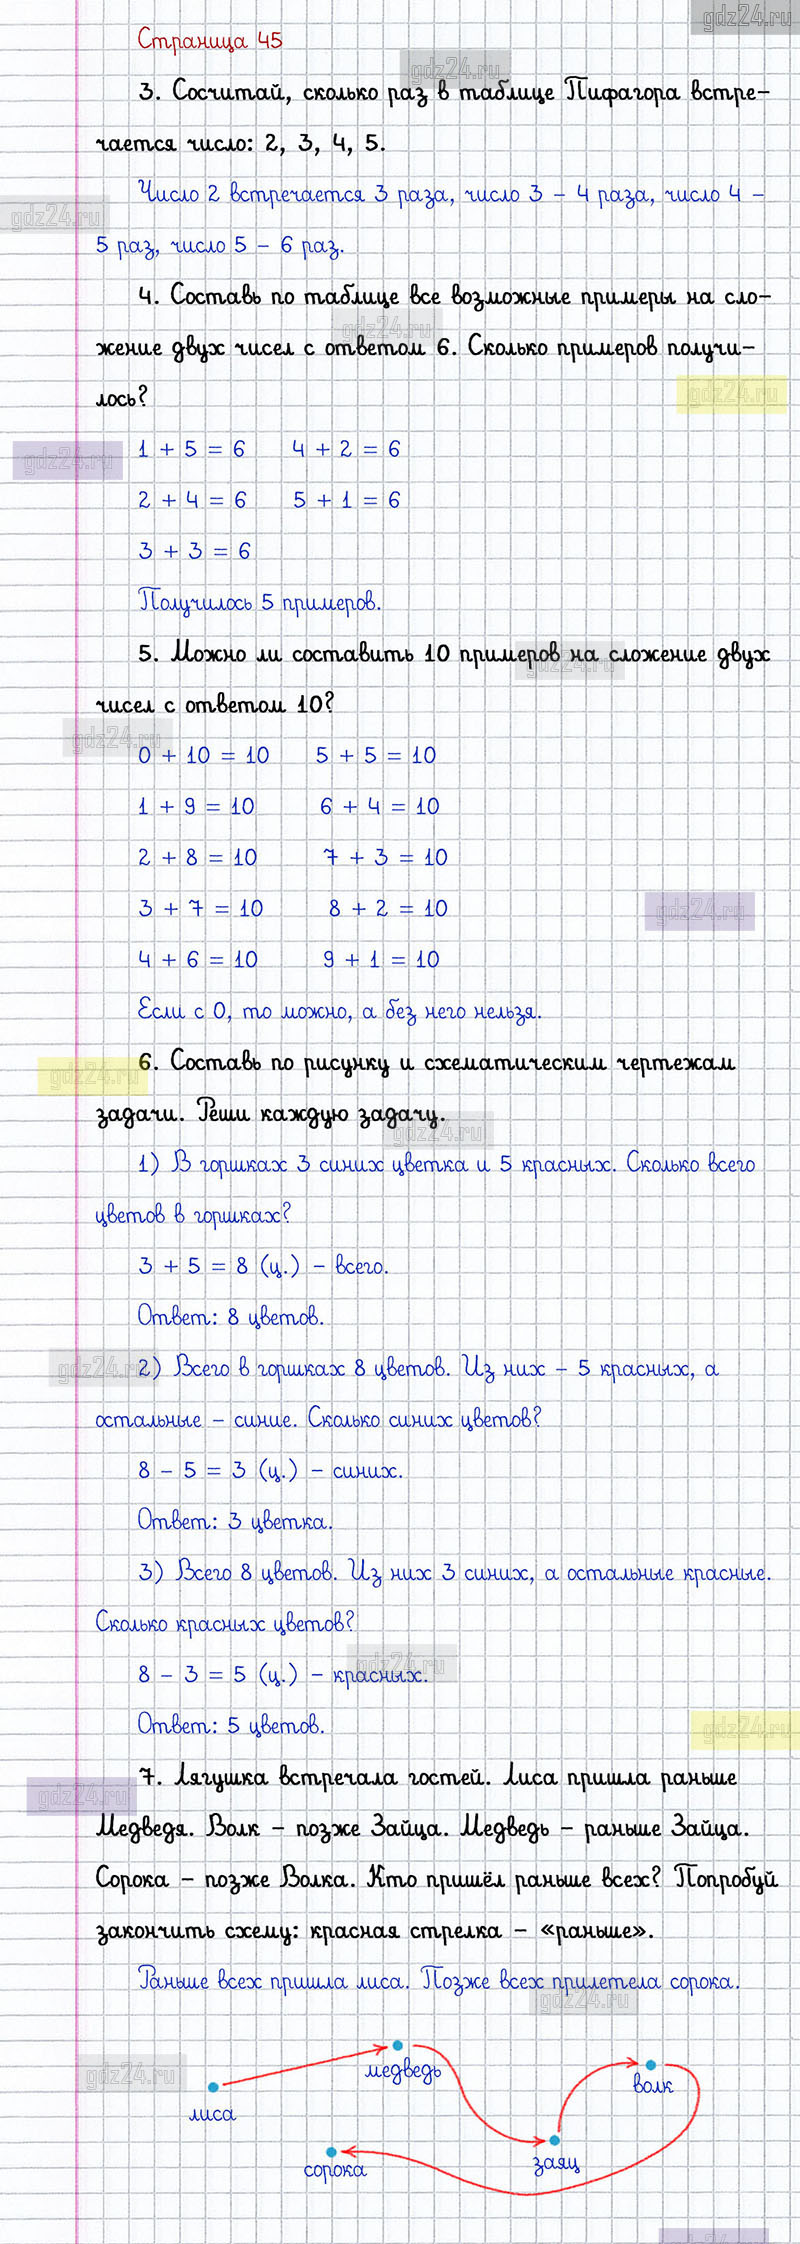 gdz24.ru
Страница 45
gdz24.ru
3. Сосчитай, сколько раз в таблице Пифагора встре-
чается число: 2, 3, 4, 5.
Число 2 встречается 3 раза, число 3 – 4 раза, число 4 –
gdz24.ru
5 раз, число 5 – 6 раз.
4. Составь по таблице все возможные примеры на сло-
gdz24.ru
жение двух чисел с ответом 6. Сколько примеров получи-
gdz24.ru
лось?
1 + 5 = 6 4 + 2 = 6
gdz24.ru
2 + 4 = 6 5 + 1 = 6
3 + 3 = 6
Получилось 5 примеров.
5. Можно ли составить 10 примеров на сложение двух
gdz24.ru
чисел с ответом 10?
gdz24.ru
0 + 10 = 10 5 + 5 = 10
1 + 9 = 10 6 + 4 = 10
2 + 8 = 10 7 + 3 = 10
3 + 7 = 10 8 + 2 = 10
gdz24.ru
4 + 6 = 10 9 + 1 = 10
Если с 0, то можно, а без него нельзя.
6. Составь по рисунку и схематическим чертежам
gdz24.ru
задачи. Реши каждую задачу.
gdz24.ru
1) В горшках 3 синих цветка и 5 красных. Сколько всего
цветов в горшках?
3 + 5 = 8 (ц.) – всего.
Ответ: 8 цветов.
gdz24.ru
2) Всего в горшках 8 цветов. Из них – 5 красных, а
остальные – синие. Сколько синих цветов?
8 – 5 = 3 (ц.) – синих.
Ответ: 3 цветка.
3) Всего 8 цветов. Из них 3 синих, а остальные красные.
Сколько красных цветов?
gdz24.ru
8 – 3 = 5 (ц.) – красных.
Ответ: 5 цветов.
gdz24.ru
7. Лягушка встречала гостей. Лиса пришла раньше
gdz24.ru
Медведя. Волк – позже Зайца. Медведь – раньше Зайца.
Сорока – позже Волка. Кто пришёл раньше всех? Попробуй
закончить схему: красная стрелка – «раньше».
Раньше всех пришла лиса. Позже всех прилетела сорока.
gdz24.ru
gdz24.ru
медведь
волк
лиса
заяц
сорока
gdz24.ru